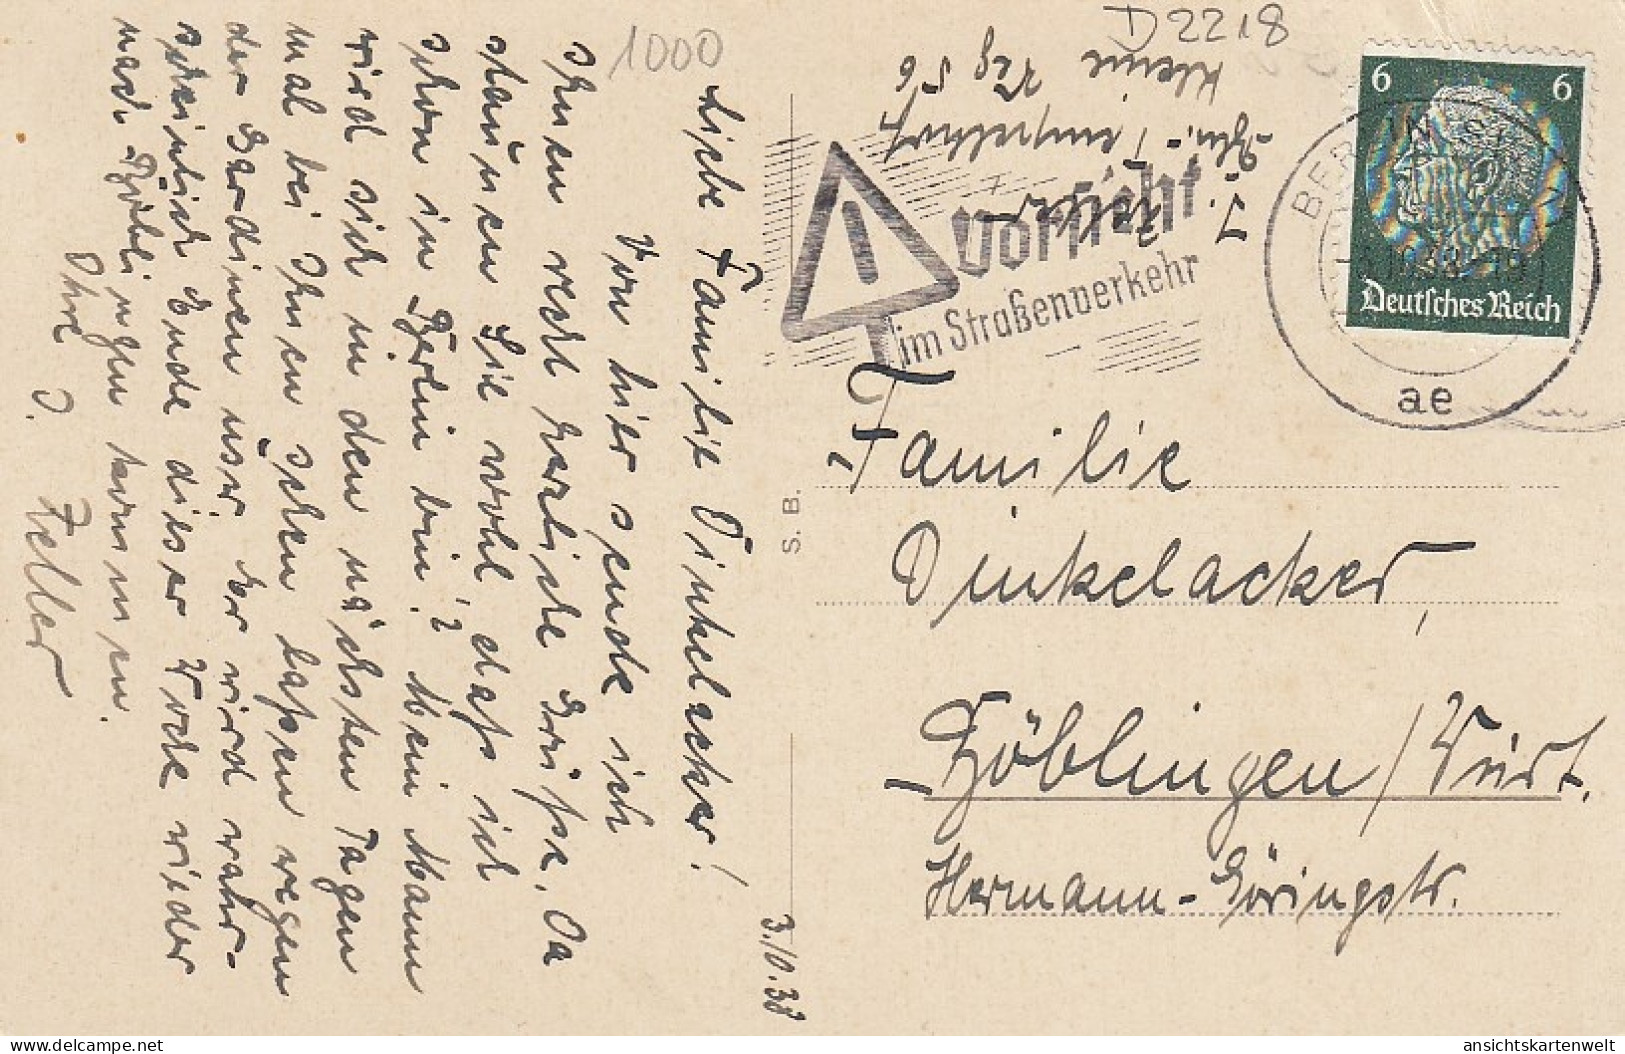 D2218
1000
J. Keller
Bln.-Tempelhof
Kleine Weg 56
Vorsicht
im Straßenverkehr
BERLIN
ae
6 6
Deutsches Reich
Familie
Dinkelacker,
Böblingen/Württ.
Hermann-Göringstr.
S. B.
3./10.38
Liebe Familie Dinkelacker!
Von hier sende ich
Ihnen recht herzliche Grüße. Da
staunen Sie wohl daß ich
schon in Berlin bin? Mein Mann
wird sich in den nächsten Tagen
mal bei Ihnen sehen laßen wegen
der Gardinen usw. Er wird wahr-
scheinlich Ende dieser Woche wieder
nach Böblingen kommen.
Ihre J. Zeller
ansichtskartenwelt
www.delcampe.net